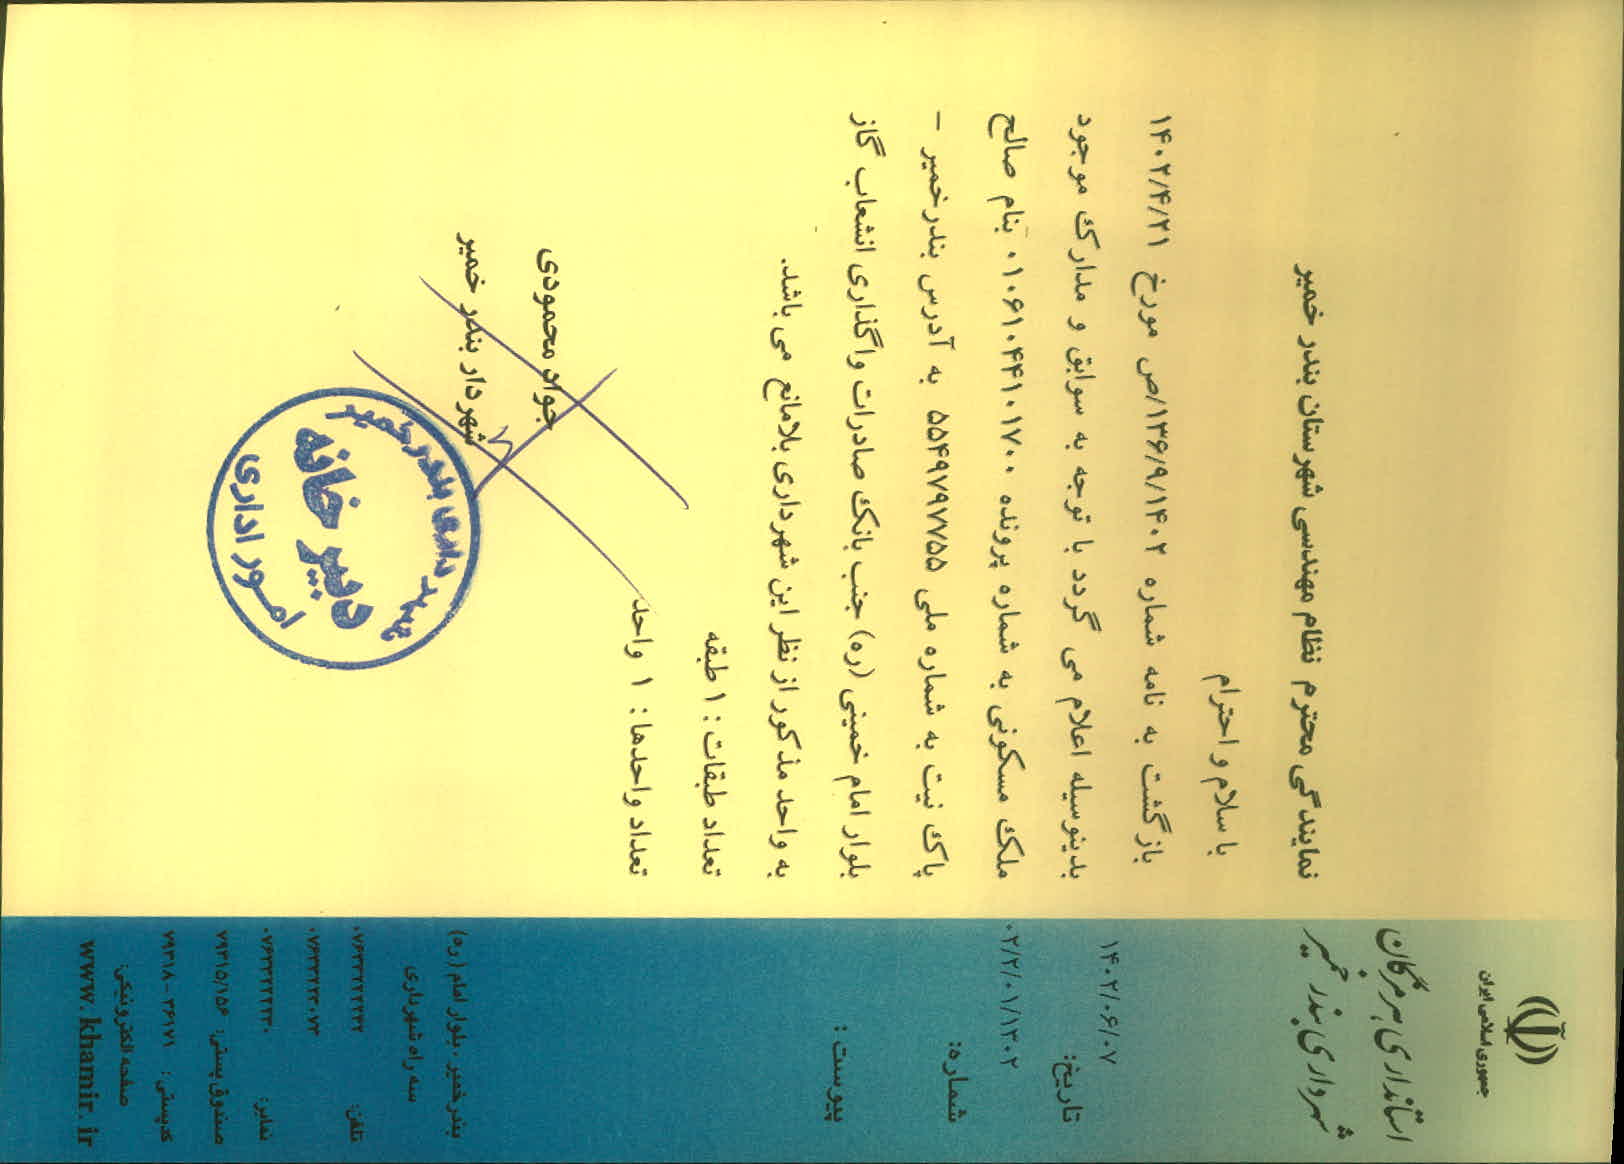 جمهوری اسلامی ایران
استانداری هرمزگان
شهرداری بندر خمیر
تاریخ:
۱۴۰۲/۰۶/۰۷
شماره:
۰۲/۲/۰۱/۱۳۰۲
پیوست:
نمایندگی محترم نظام مهندسی شهرستان بندر خمیر
با سلام و احترام
بازگشت به نامه شماره ۱۳۶/۹/۱۴۰۲/ص مورخ ۱۴۰۲/۴/۲۱
بدینوسیله اعلام می گردد با توجه به سوابق و مدارک موجود
ملک مسکونی به شماره پرونده ۰۱۰۶۱۰۴۴۱۰۱۷۰۰ بنام صالح
پاک نیت به شماره ملی ۵۵۴۹۷۹۷۷۵۵ به آدرس بندرخمیر –
بلوار امام خمینی (ره) جنب بانک صادرات واگذاری انشعاب گاز
به واحد مذکور از نظر این شهرداری بلامانع می باشد.
تعداد طبقات : ۱ طبقه
تعداد واحدها : ۱ واحد
جواد محمودی
شهردار بندر خمیر
شهرداری بندر خمیر
دبیر خانه
امور اداری
بندر خمیر ، بلوار امام (ره)
سه راه شهرداری
تلفن:
نمابر:
صندوق پستی: ۷۹۳۱۵/۱۵۶
کدپستی : ۳۶۱۷۱ – ۷۹۳۱۸
صفحه الکترونیکی:
www.khamir.ir